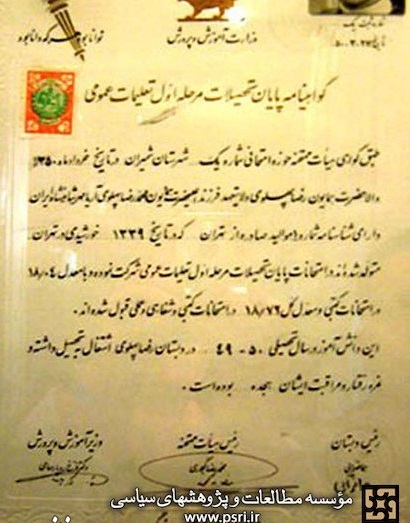 توانا بود هر که دانا بود
وزارت آموزش و پرورش
شماره ثبت یک
تاریخ ۵۰،۳،۲۷
گواهینامه پایان تحصیلات مرحله اول تعلیمات عمومی
طبق گواهی هیأت ممتحنه حوزه امتحانی شماره یک شهرستان شمیران در تاریخ خرداد ماه ۱۳۵۰
والاحضرت همایون رضا پهلوی ولایتعهد فرزند اعلیحضرت همایون محمد رضا پهلوی آریامهر شاهنشاه ایران
دارای شناسنامه شماره ۱ موالید صادره از تهران که در تاریخ ۱۳۳۹ خورشیدی در تهران
متولد شده‌اند در امتحانات پایان تحصیلات مرحله اول تعلیمات عمومی شرکت نموده و با معدل ۱۸/۰۴
در امتحانات کتبی و معدل کل ۱۸/۷۶ در امتحانات کتبی و شفاهی و عملی قبول شده‌اند.
این دانش آموز در سال تحصیلی ۵۰-۴۹ در دبستان رضا پهلوی اشتغال به تحصیل داشته و
نمره رفتار و مراقبت ایشان هجده بوده است.
رئیس دبستان
رئیس هیأت ممتحنه
وزیر آموزش و پرورش
مؤسسه مطالعات و پژوهشهای سیاسی
www.psri.ir